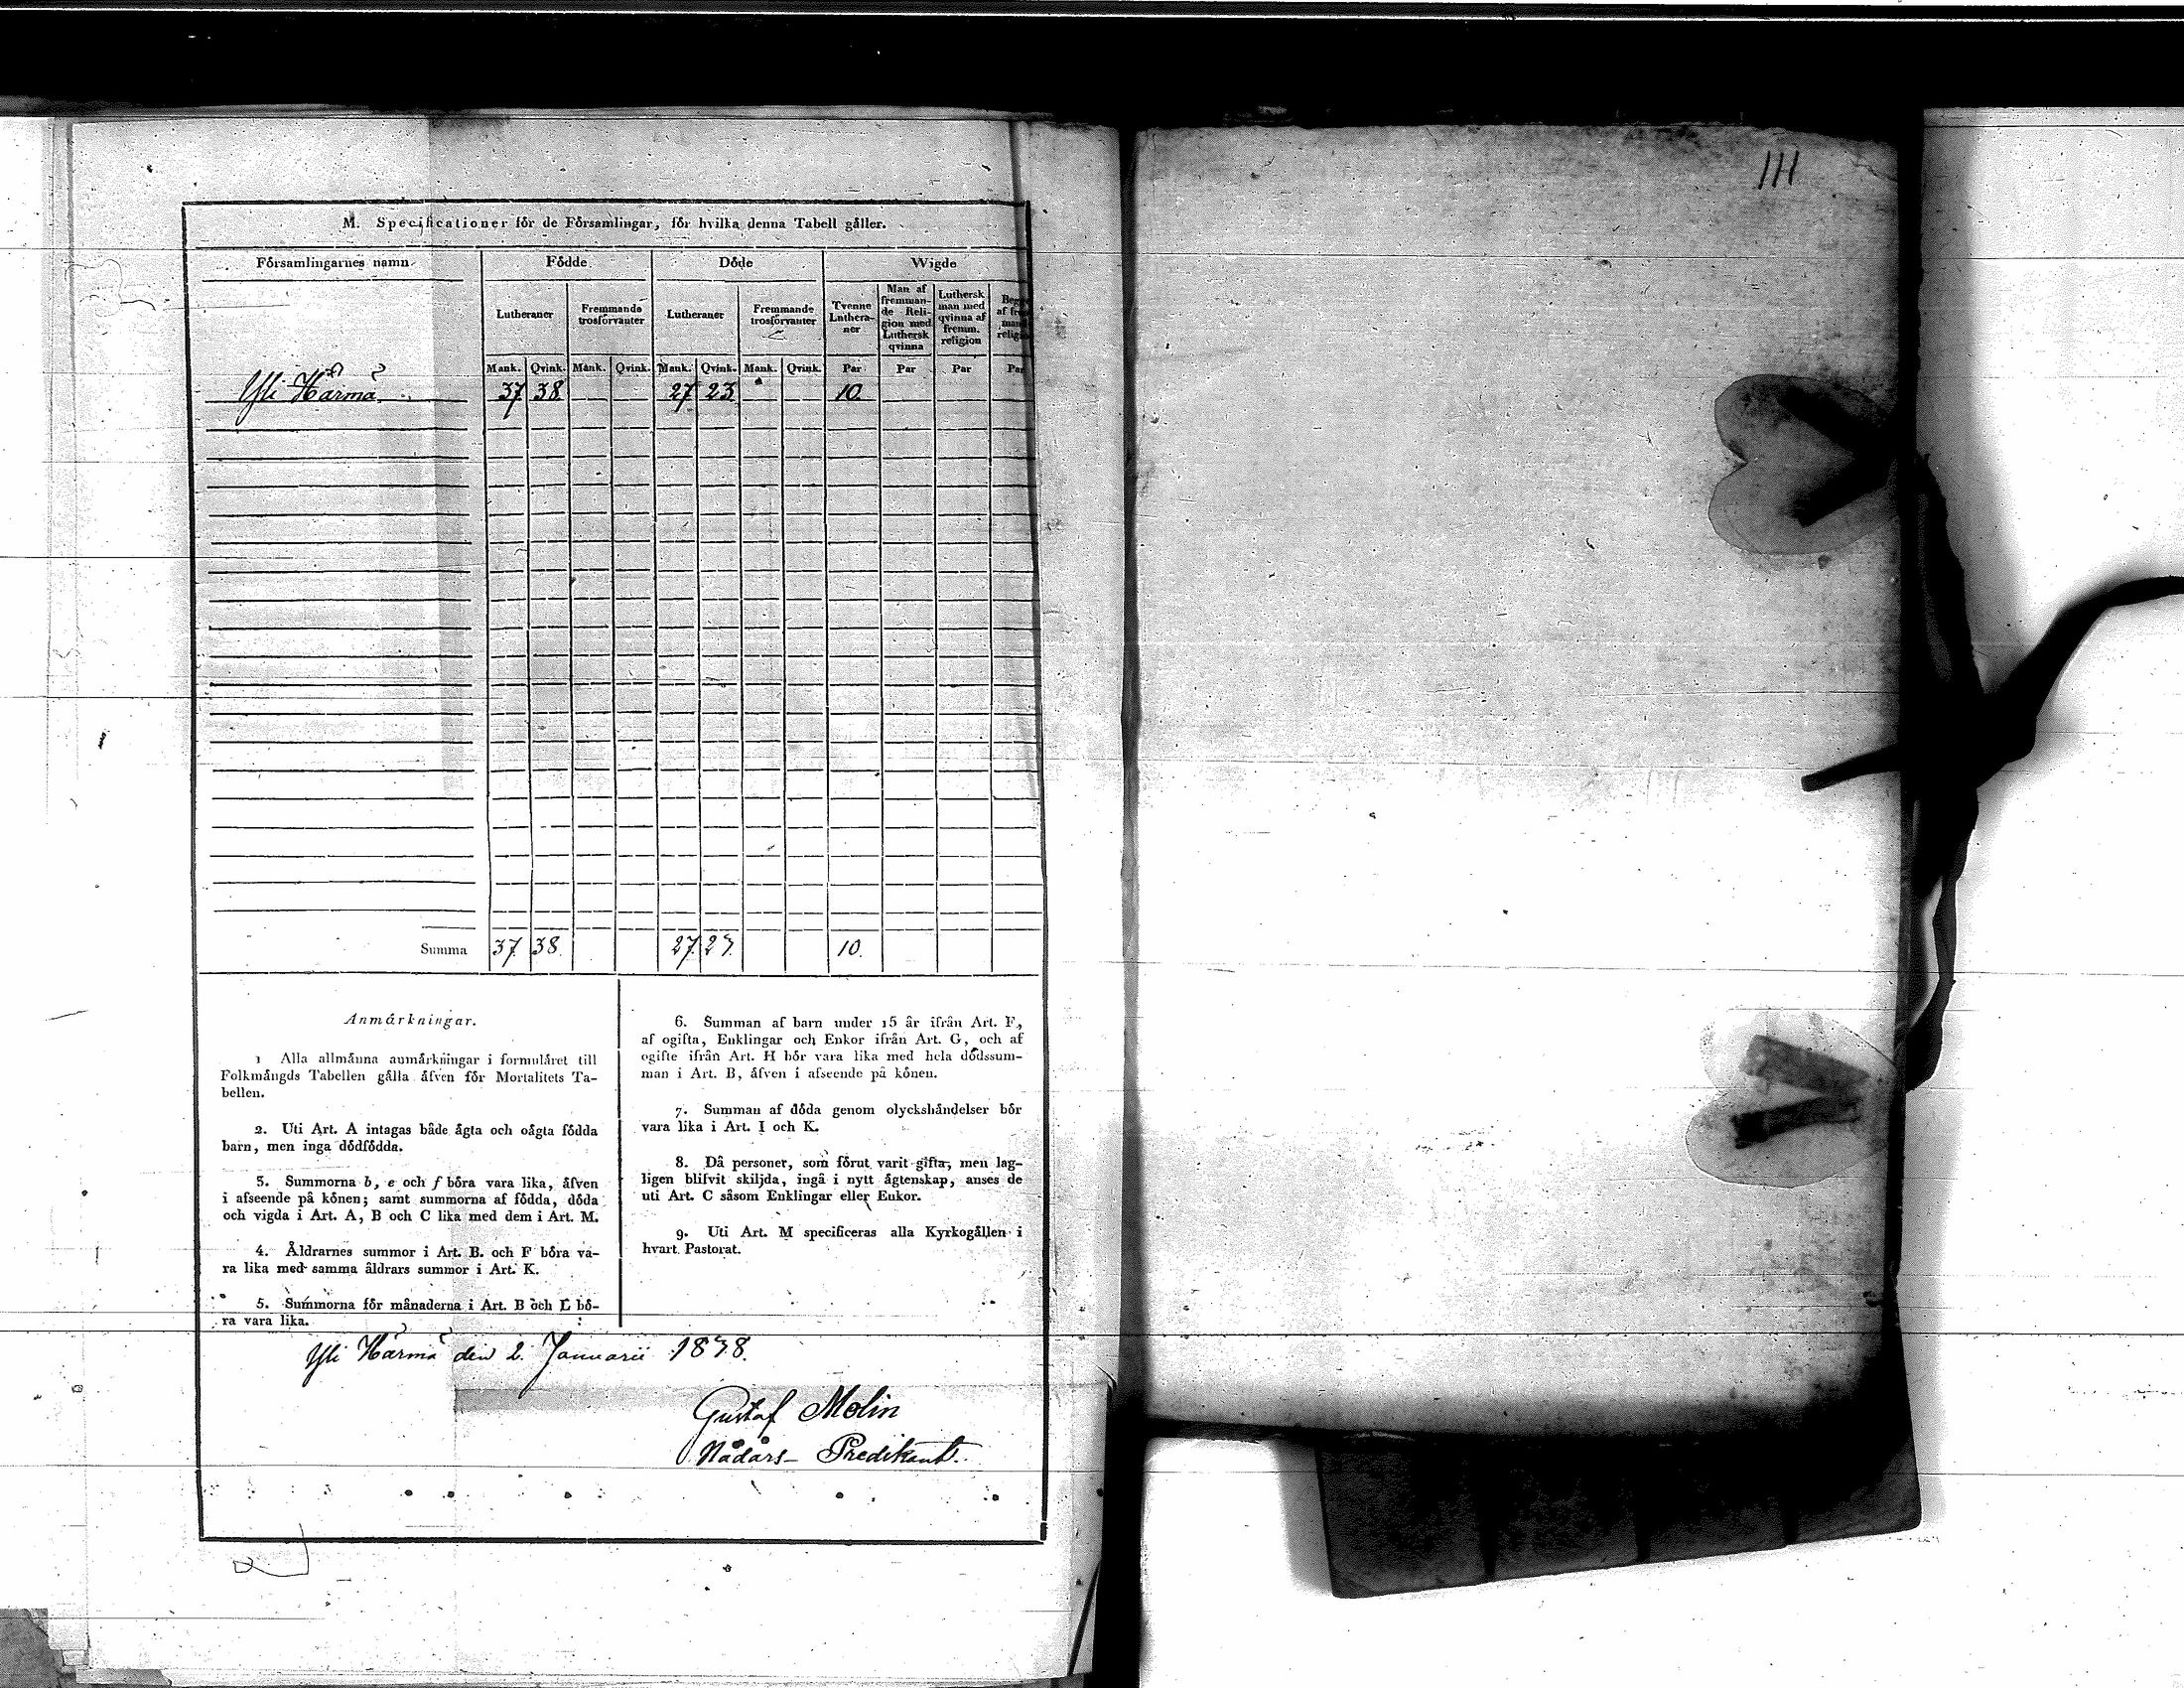 111
M. Specificationer för de Församlingar, för hvilka denna Tabell gäller.
Församlingarnes namn Födde Döde Wigde
Lutheraner Fremmande trosförvanter Lutheraner Fremmande trosförvanter Tvenne Lutheraner Man af fremmande Religion med Luthersk qvinna Luthersk man med qvinna af fremm. religion
Mank. Qvink. Mank. Qvink. Mank. Qvink. Mank. Qvink. Par Par Par Par
Yli Härmä 37 38 27 23 10.
Summa 37. 38. 27. 23. 10.
Anmärkningar.
1 Alla allmänna anmärkningar i formuläret till
Folkmängds Tabellen gälla äfven för Mortalitets Ta-
bellen.
2. Uti Art. A intagas både ägta och oägta födda
barn, men inga dödfödda.
3. Summorna b, e och f böra vara lika, äfven
i afseende på könen; samt summorna af födda, döda
och vigda i Art. A, B och C lika med dem i Art. M.
4. Åldrarnes summor i Art. B. och F böra va-
ra lika med samma åldrars summor i Art. K.
5. Summorna för månaderna i Art. B och L bö-
ra vara lika.
6. Summan af barn under 15 år ifrån Art. F,
af ogifta, Enklingar och Enkor ifrån Art. G, och af
ogifte ifrån Art. H bör vara lika med hela dödssum-
man i Art. B, äfven i afseende på könen.
7. Summan af döda genom olyckshändelser bör
vara lika i Art. I och K.
8. Då personer, som förut varit gifta, men lag-
ligen blifvit skiljda, ingå i nytt ägtenskap, anses de
uti Art. C såsom Enklingar eller Enkor.
9. Uti Art. M specificeras alla Kyrkogällen i
hvart Pastorat.
Yli Härmä den 2. Januarii 1838.
Gustaf Molin
Nådårs- Predikant.